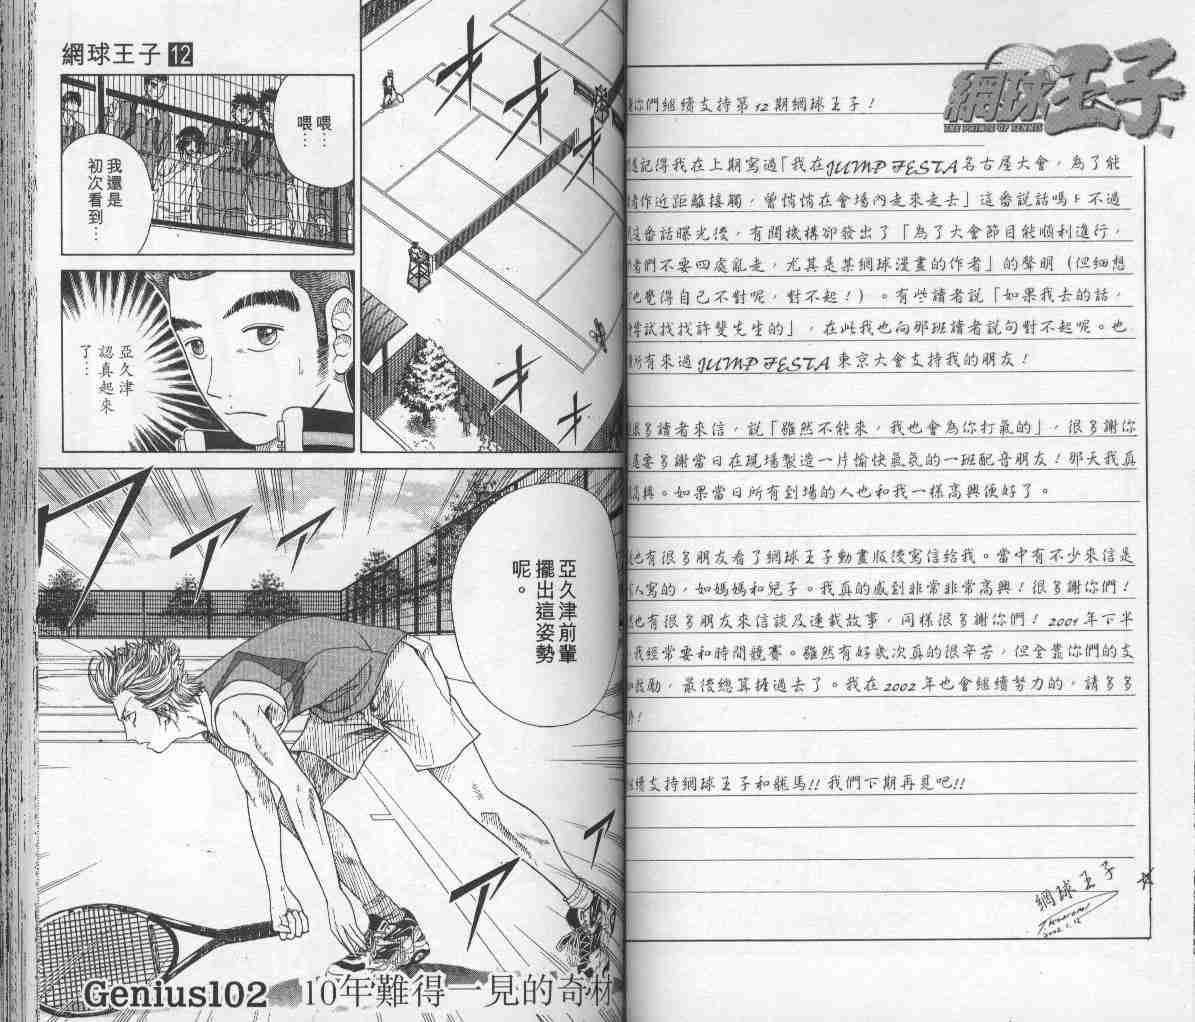 網球王子 12
喂…
喂…
我還是
初次看到…
亞久津
認真起來
了…
亞久津前輩
擺出這姿勢
呢。
Genius102 10年難得一見的奇材
網球王子
THE PRINCE OF TENNIS
你們繼續支持第12期網球王子！
記得我在上期寫過「我在JUMP FESTA名古屋大會，為了能
作近距離接觸，曾悄悄在會場內走來走去」這番說話嗎？不過
番話曝光後，有關機構卻發出了「為了大會節目能順利進行，
者們不要四處亂走，尤其是某網球漫畫的作者」的聲明（但細想
覺得自己不對呢，對不起！）。有些讀者說「如果我去的話，
嘗試找找許斐先生的」，在此我也向那班讀者說句對不起呢。也
所有來過JUMP FESTA東京大會支持我的朋友！
多讀者來信，說「雖然不能來，我也會為你打氣的」，很多謝你
要多謝當日在現場製造一片愉快氣氛的一班配音朋友！那天我真
高興。如果當日所有到場的人也和我一樣高興便好了。
也有很多朋友看了網球王子動畫版後寫信給我。當中有不少來信是
人寫的，如媽媽和兒子。我真的感到非常非常高興！很多謝你們！
也有很多朋友來信談及連載故事，同樣很多謝你們！2001年下半
我經常要和時間競賽。雖然有好幾次真的很辛苦，但全靠你們的支
鼓勵，最後總算捱過去了。我在2002年也會繼續努力的，請多多
！
續支持網球王子和龍馬!!我們下期再見吧!!
網球王子
2002.1.12